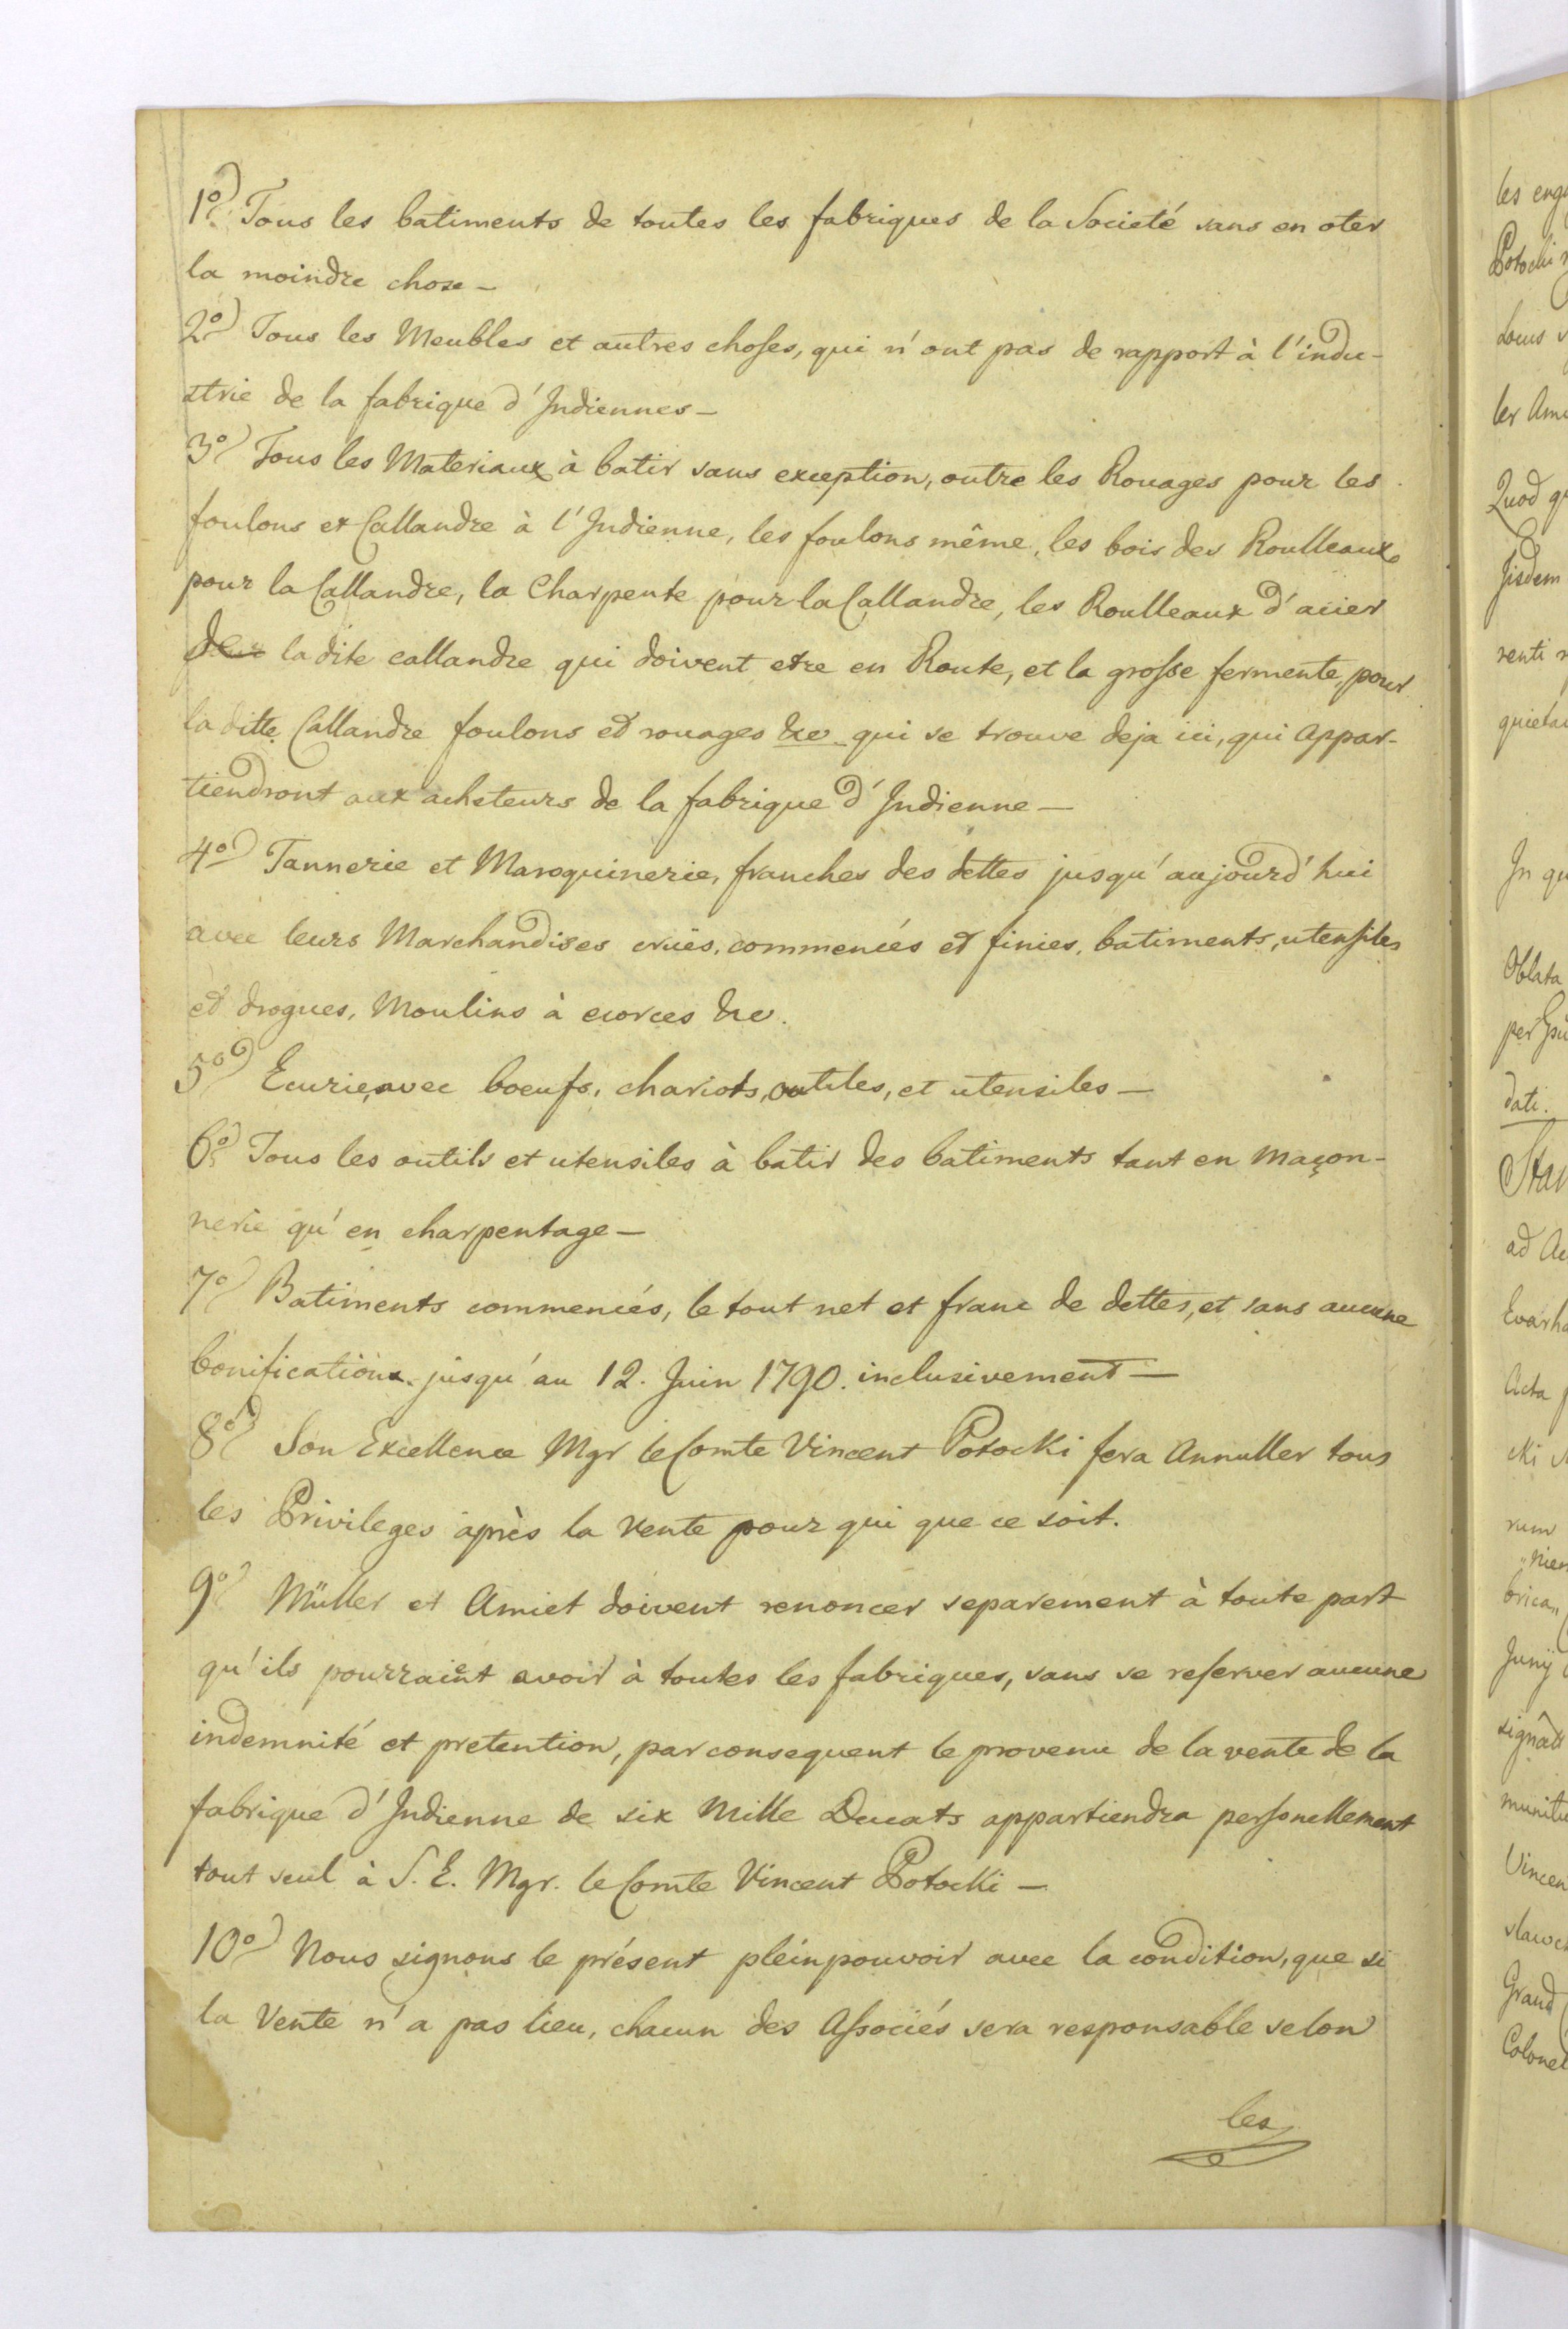 1º Tous les batiments de toutes les fabriques de la Societé sans en oter
la moindre chose —
2º Tous les Meubles et autres choses, qui n'ont pas de rapport à l'indu-
strie de la fabrique d'Indiennes —
3º Tous les Materiaux à batir sans exception, outre les Rouages pour les
foulons et Callandre à l'Indienne, les foulons même, les bois des Roulleaux
pour la Callandre, la Charpente pour la Callandre, les Roulleaux d'acier
de la dite callandre qui doivent etre en Route, et la grosse fermente, pour
la ditte Callandre foulons et rouages &c qui se trouve deja ici, qui appar-
tiendront aux acheteurs de la fabrique d'Indienne —
4º Tannerie et Maroquinerie, franches des dettes jusqu'aujourd'hui
avec leurs Marchandises crües, commencés et finies, batiments, utensiles
et drogues, Moulins à ecorces &c.
5º Ecurie, avec boeufs, chariots, outiles, et utensiles —
6º Tous les outils et utensiles à batir des batiments tant en Maçon-
nerie qu'en charpentage —
7º Batiments commencés, le tout net et franc de dettes, et sans aucune
bonification jusqu'au 12. Juin 1790. inclusivement —
8º Son Excellence Mgr le Comte Vincent Potocki fera Annuller tous
les Privileges après la Vente pour qui que ce soit.
9º Müller et Amiet doivent renoncer separement à toute part
qu'ils pourraient avoir à toutes les fabriques, sans se reserver aucune
indemnité et pretention, par consequent le provenu de la vente de la
fabrique d'Indienne de six Mille Ducats appartiendra personellement
tout seul à S. E. Mgr. le Comte Vincent Potocki —
10º Nous signons le présent pleinpouvoir avec la condition, que si
la Vente n'a pas lieu, chacun des Associés sera responsable selon
les
les
Potocki
tous
Quod
Jisdem
In
Oblata
per
dati.
ad
Acta
Juny
Vincen
Grand
Colonel